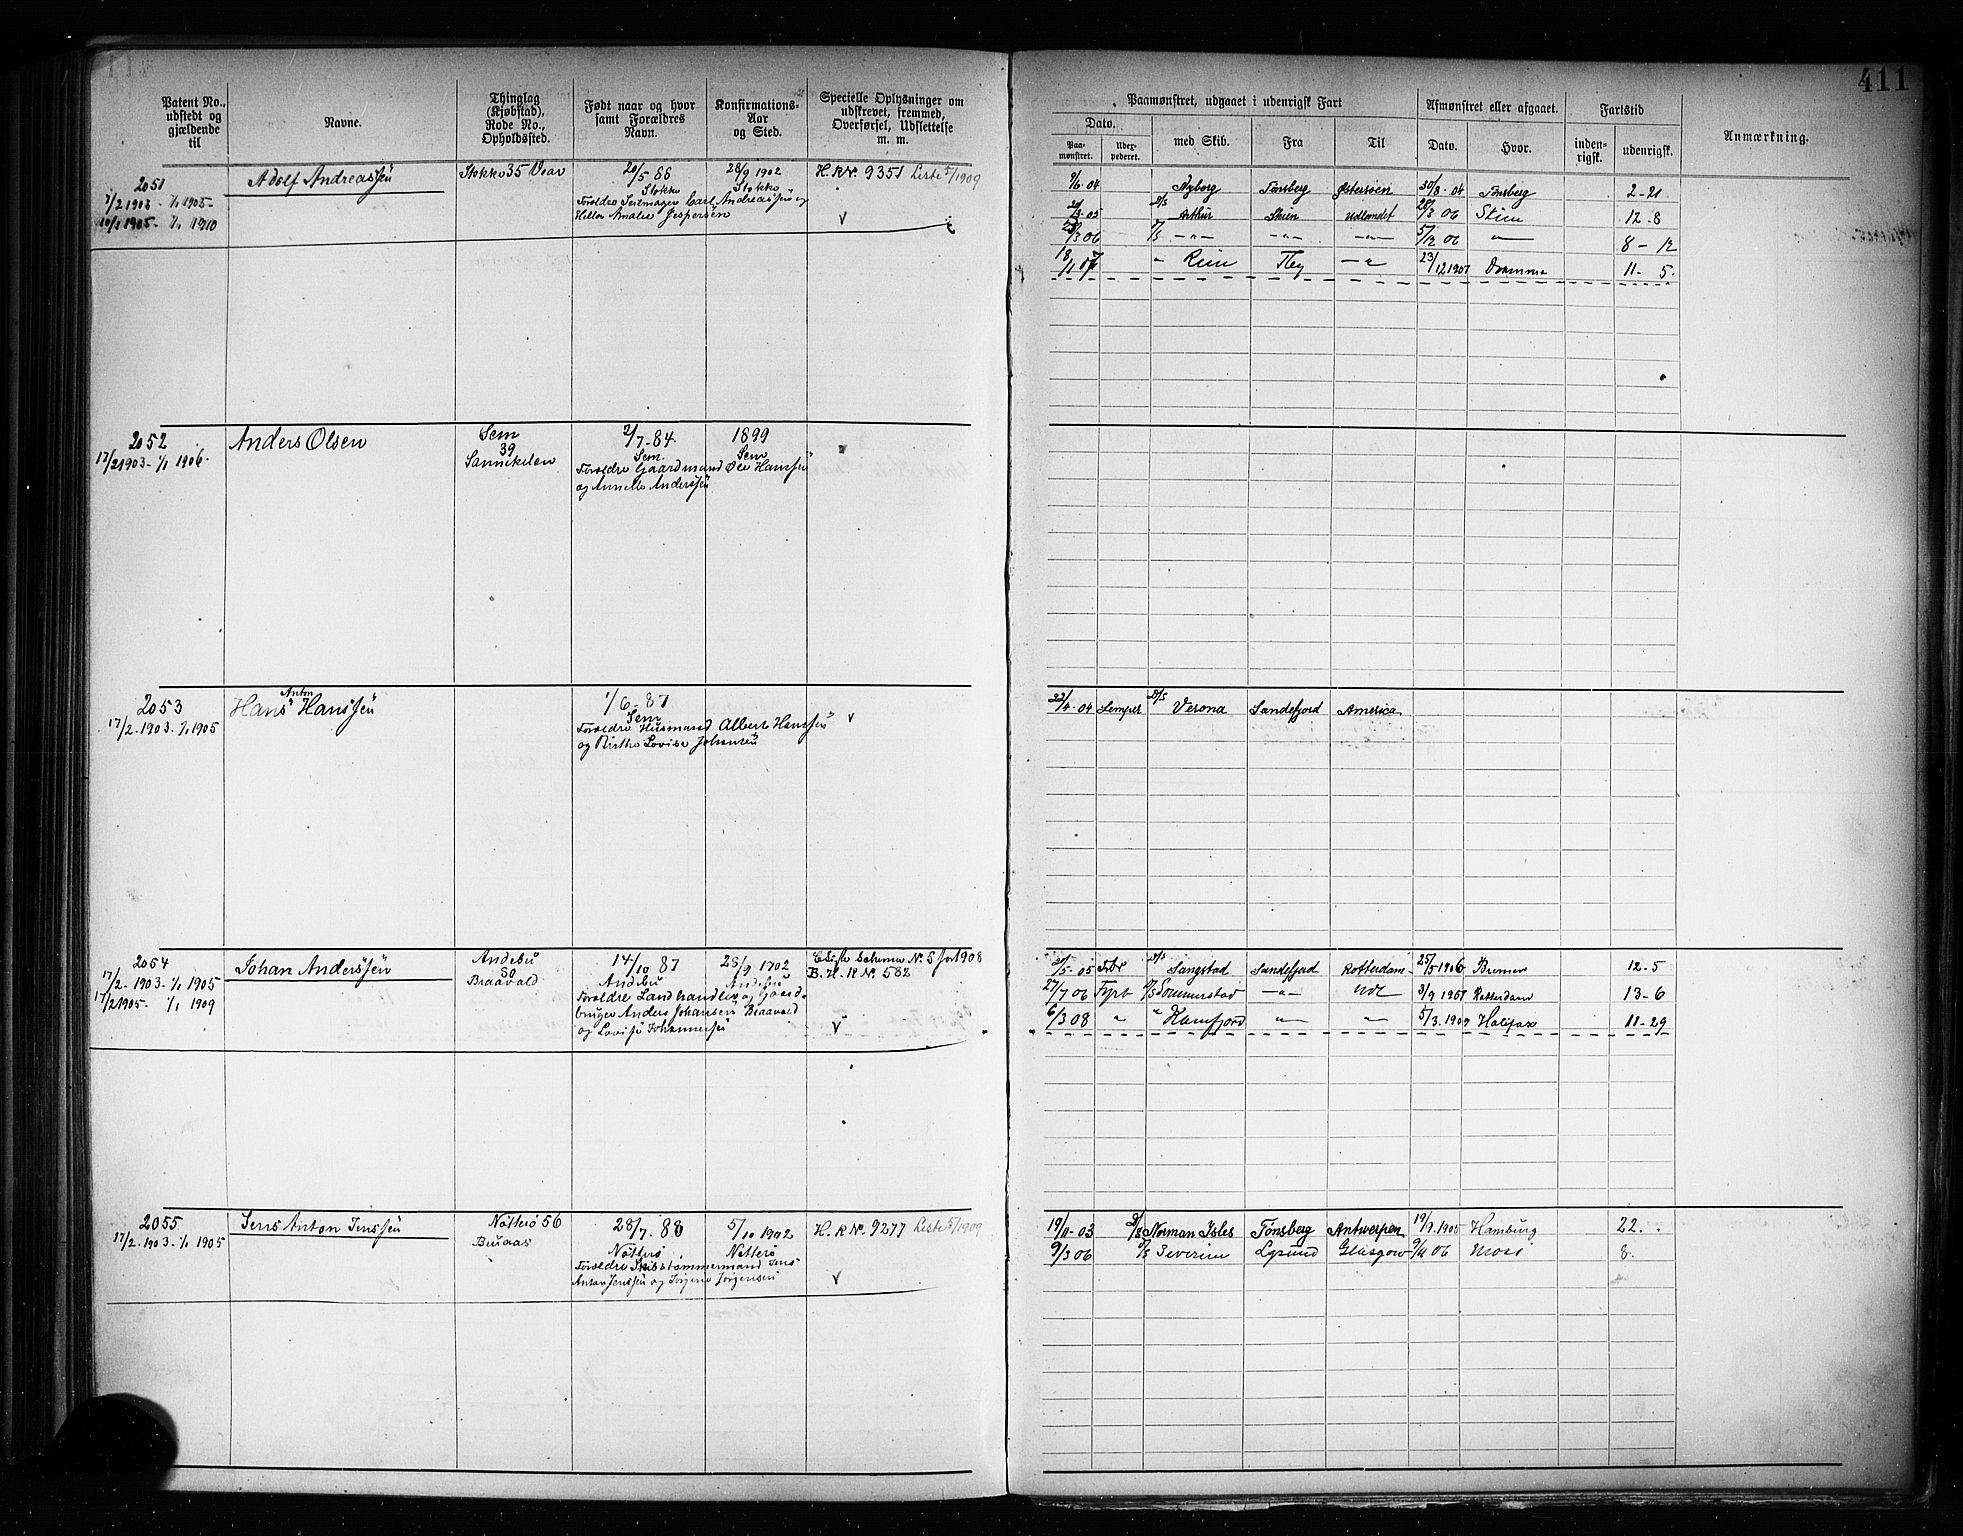 411
Patent No., udstedt og gjældende til
Navne.
Thinglag (Kjøbstad), Rode No., Opholdssted.
Født naar og hvor samt Forældres Navn.
Konfirmations-Aar og Sted.
Specielle Oplysninger om udskrevet, fremmed, Overførsel, Udslettelse m. m.
Paamønstret, udgaaet i udenrigsk Fart
Afmønstret eller afgaaet.
Fartstid
Anmærkning.
Dato.
Paa-mønstret.
Udex-pederet.
med Skib.
Fra
Til
Dato.
Hvor.
inden-rigsk.
udenrigsk.
2051 Adolf Andreassen Stokke 35 Vear 20/5 86 28/9 1902 H.R.Nr. 9351 Liste 5/1909
17/2 1903 - 1/1 1905 Stokke Stokke
Forældre Seilmager Carl Andreassen og
1905 - 1/1 1910 Amalie Jespersen V
9/6 04 Nyborg Tønsberg Østersøen 30/8 - 04 Tønsberg 2 - 21
05 D/S Arthur Skien Udlandet 06 Skien 12 - 8
23/3 06 D/S -"- -"- -"- 5/12 06 " 8 - 12
18/1 07 " Fley -"- 23/12 1907 11 - 5
2052 Anders Olsen Sem 2/7 - 84 1899
17/2 1903 - 1/1 1906 39 Sem Sem
Sannekilen Forældre Gaardmand Ole Hanssen
og Annette Anderssen
2053 Hans Anton Hanssen 1/6 - 87 V
17/2. 1903. 1/1 1905 Sem
Forældre Husmand Albert Hanssen
og Birthe Lovise Johansen
22/4 - 04 D/S Verona Sandefjord America
2054 Johan Anderssen Andebu 14/10 87 28/9 1902 Liste Schema Nr. 5 for 1908
17/2 - 1903 - 1/1 1905 50 Andebu Andebu B. H. R Nr. 582
17/2 1905 - 1/1 1909 Braavald Forældre Landhandler og Gaard-
bruger Anders Johansen Braavald
og Lovise Johannessen V
5 - 05 D/S Sangstad Sandefjord Rotterdam 25/5 1906 Bremen 12 - 5
27/7 06 D/S Sommerstad -"- Udl 3/9 1907 Rotterdam 13 - 6
6/3 08 " " " " 5/3. 1909 Halifax 11 - 29
2055 Jens Anton Jenssen Nøtterø 56 28/7. 88 5/10 1902 H. R Nr. 9277 Liste 5/1909
17/2. 1903. 1/1 1905 Buaas Nøtterø Nøtterø
Forældre Skibstømmermand Jens
Anton Jenssen og Jørgine Jørgensen V
19/11 - 03 D/S Norman Isles Tønsberg Antwerpen 19/9. 1905 Hamburg 22.
9/3 06 D/S Severin Lysund Glasgow 9/11 06 Moss 8.